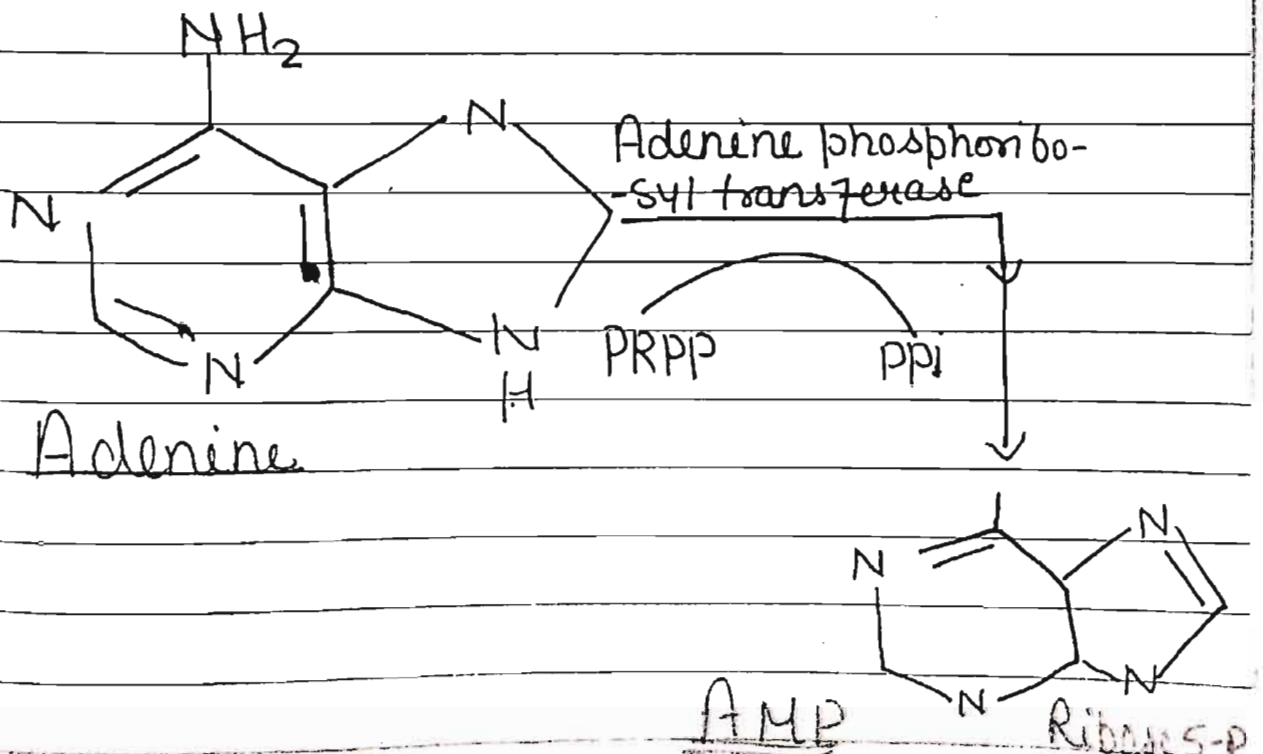 NH2
N
N
Adenine phosphoribo-
-syl transferase
N
N
H
PRPP
PPi
Adenine
N
N
N
N
AMP
Ribose 5-P